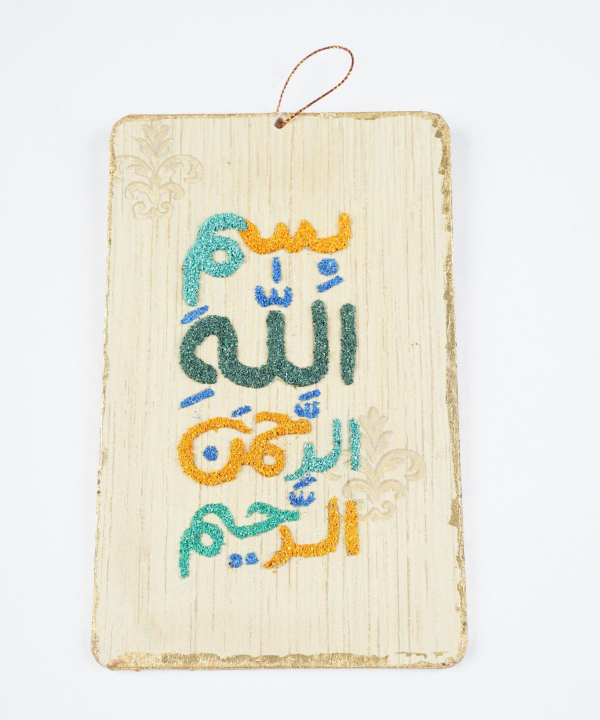 بِسْمِ
اللّٰهِ
الرَّحْمَنِ
الرَّحيم